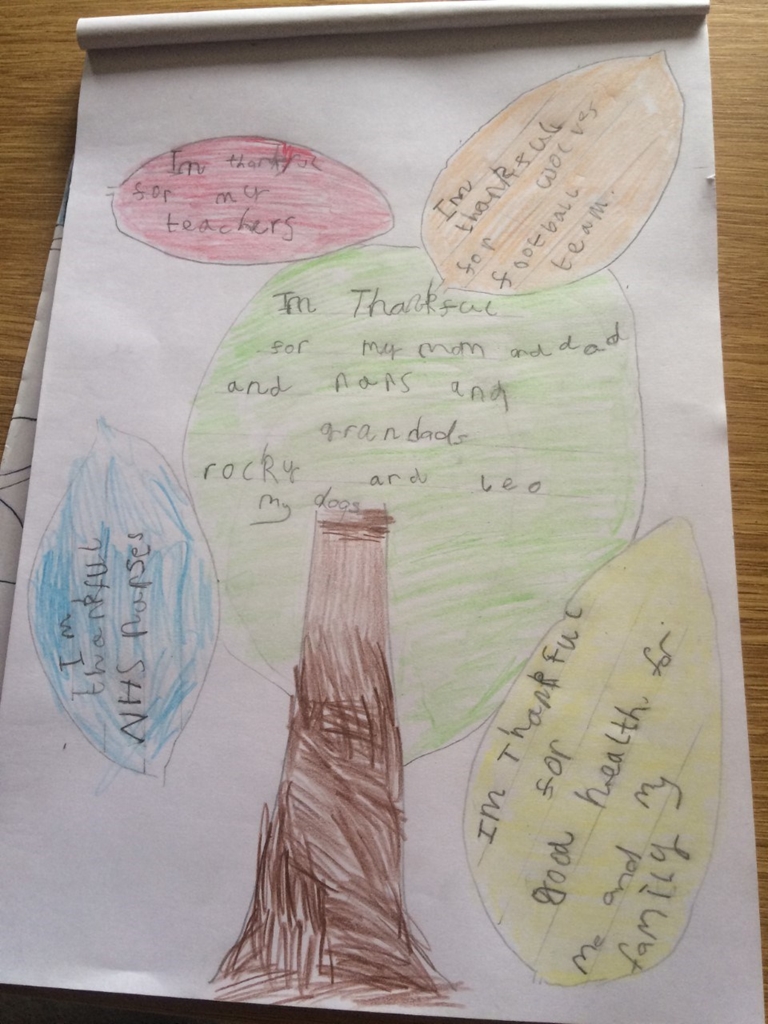 Im thankful
for my
teachers
Im
thankful
for wolves
football
team.
Im Thankful
for my mom and dad
and nans and
grandads
rocky and Leo
my dogs
Im
thankful
NHS nurses
Im Thankful
for
good health for
me and my
family